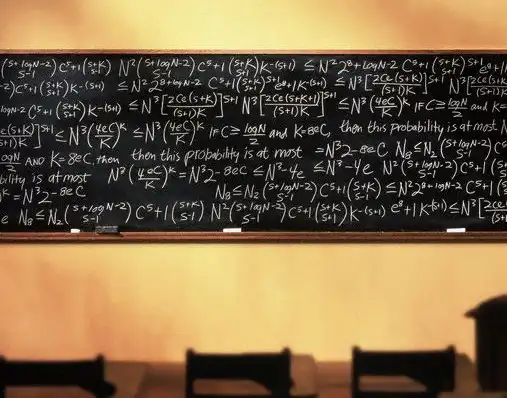 (s+logN-2 s-1) C^s+1 (s+k s+1) N^2 (s+logN-2 s-1) C^s+1 (s+k s+1) k^-(s+1) ≤ N^2 2^8+logN-2 C^s+1 (s+k s+1)^s+1 e^8+1 k
-2) C^s+1 (s+k s+1) k^-(s+1) ≤ N^2 2^8+logN-2 C^s+1 (s+k s+1)^s+1 e^8+1 k^-(s+1) ≤ N^3 [2Ce(s+k) (s+1)k]^s+1 N^3 [2Ce (s+1)
logN-2 C^s+1 (s+k s+1) k^-(s+1) ≤ N^3 [2Ce(s+k) (s+1)k]^s+1 N^3 [2Ce(s+k+1) (s+1)k]^s+1 ≤ N^3 (4eC K)^k IF C ≥ logN 2 and k=
e(s+k) (s+1)k]^s+1 ≤ N^3 (4eC K)^k ≤ N^3 (4eC K)^k IF C ≥ logN 2 and K=8eC, then this probability is at most N
logN 2 AND K=8eC, then then this probability is at most =N^3 2-8eC N8 ≤ N2 (s+logN-2 s-1) C^s
bility is at most N^3 (4eC K)^k = N^3 2-8eC ≤ N^3-4e ≤ N^3-4e N^2 (s+logN-2 s-1) C^s+1 (s+k s+1)
^k = N^3 2-8eC N8 ≤ N2 (s+logN-2 s-1) C^s+1 (s+k s+1) ≤ N^2 2^8+logN-2 C^s+1 (s
e N8 ≤ N2 (s+logN-2 s-1) C^s+1 (s+k s+1) N^2 (s+logN-2 s-1) C^s+1 (s+k s+1) k^-(s+1) e^8+1 K^-(s+1) ≤ N^3 [2Ce (s+1)